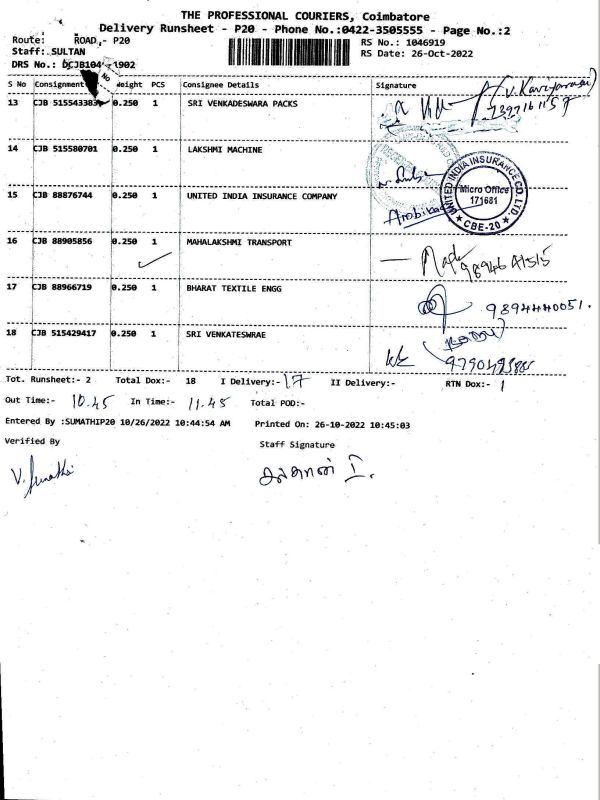 THE PROFESSIONAL COURIERS, Coimbatore
Delivery Runsheet - P20 - Phone No.:0422-3505555 - Page No.:2
Route: ROAD - P20 RS No.: 1046919
Staff: SULTAN RS Date: 26-Oct-2022
DRS No.:
S No Consignment Weight PCS Consignee Details Signature
13 CJB 0.250 1 SRI VENKADESWARA PACKS
14 CJB 515580701 0.250 1 LAKSHMI MACHINE
15 CJB 88876744 0.250 1 UNITED INDIA INSURANCE COMPANY
UNITED INDIA INSURANCE CO. LTD.
Micro Office
171681
★ CBE-20 ★
16 CJB 88905856 0.250 1 MAHALAKSHMI TRANSPORT
17 CJB 88966719 0.250 1 BHARAT TEXTILE ENGG
9894440051.
18 CJB 515429417 0.250 1 SRI VENKATESWRAE
Tot. Runsheet:- 2 Total Dox:- 18 I Delivery:- 17 II Delivery:- RTN Dox:- 1
Out Time:- 10.45 In Time:- 11.45 Total POD:-
Entered By :SUMATHIP20 10/26/2022 10:44:54 AM Printed On: 26-10-2022 10:45:03
Verified By Staff Signature